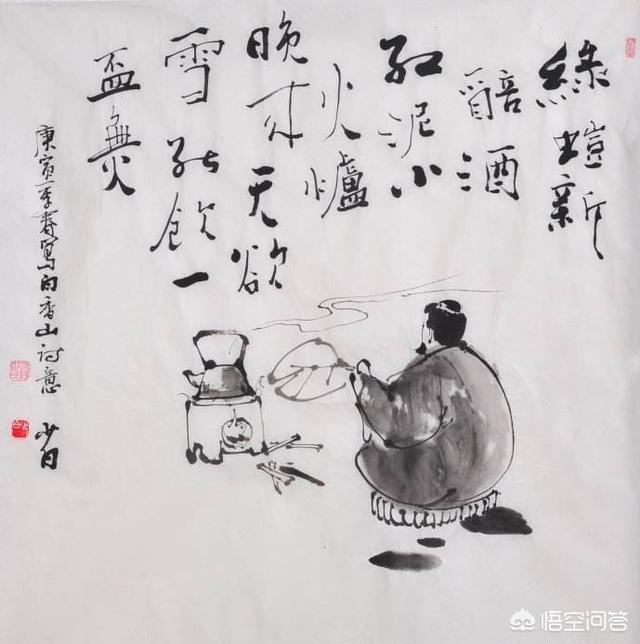 綠螘新
醅酒
红泥小
火爐
晚来天欲
雪能飲一
盃無
庚寅季春寫白香山诗意
悟空问答